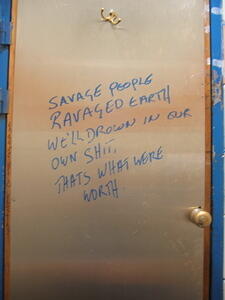 SAVAGE PEOPLE
RAVAGED EARTH
WE'LL DROWN IN OUR
OWN SHIT,
THATS WHAT WERE
WORTH